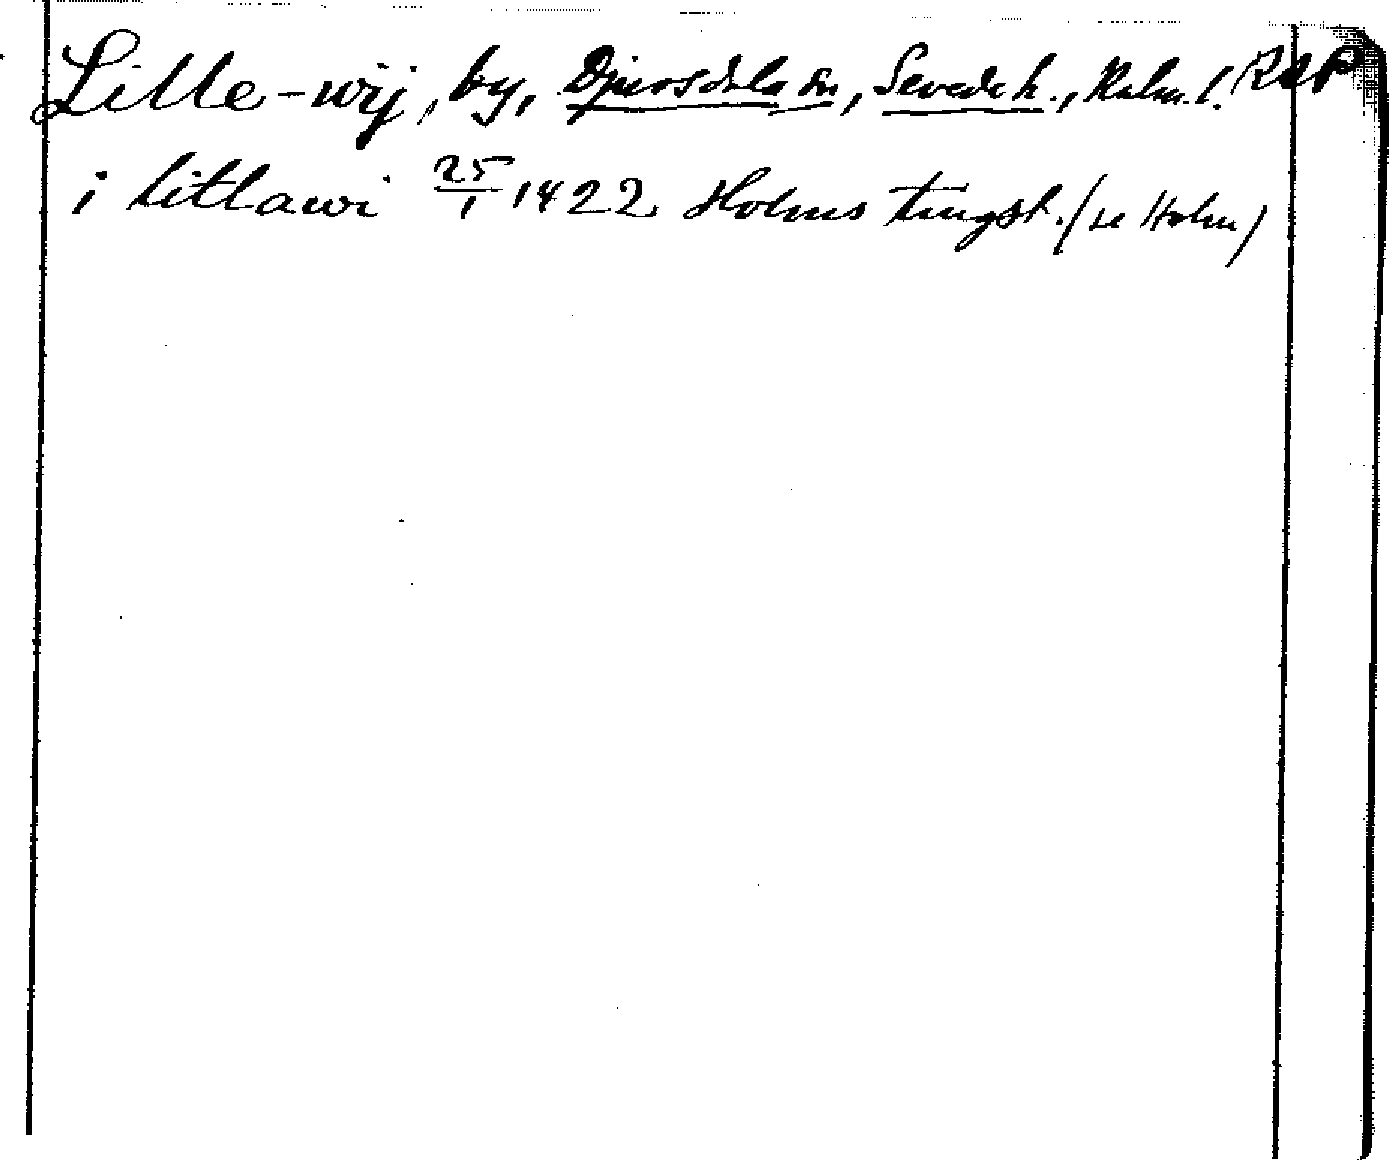 Lille-wij, by, Djursdala sn, Sevede h., Kalm. l. RAP
i litlawi 25/1 1422 Holms tingst. (se Holm)